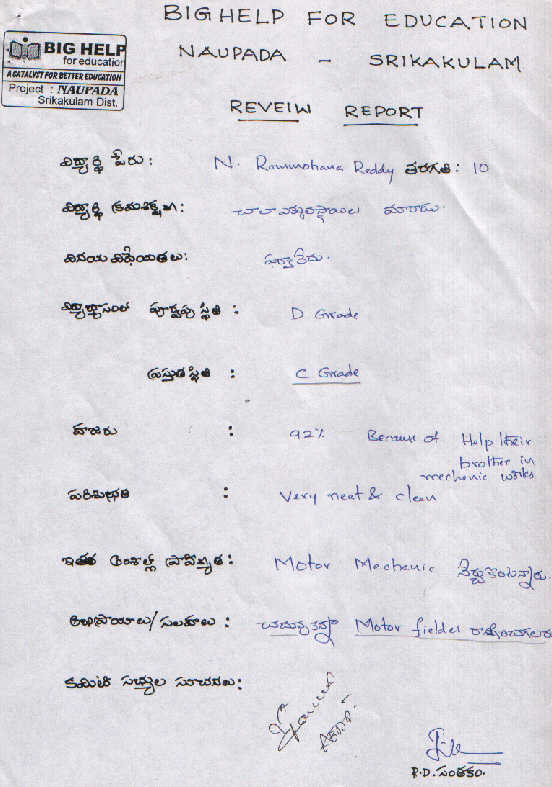 BIG HELP FOR EDUCATION
NAUPADA - SRIKAKULAM
BIG HELP
for education
A CATALYST FOR BETTER EDUCATION
Project : NAUPADA
Srikakulam Dist.
REVEIW - REPORT
విద్యార్థి పేరు : N. Rammohana Reddy తరగతి : 10
విద్యార్థి క్రమశిక్షణ : చాలా మారాడు.
వినయ విధేయతలు : పర్వాలేదు.
పూర్వపు స్థితి : D Grade
ప్రస్తుత స్థితి : C Grade
హాజరు : 92% Because of Help their
brother in
mechanic works
పరిశుభ్రత : Very neat & clean
ఇతర ప్రావీణ్యత : Motor Mechanic నేర్చుకుంటున్నారు.
అభిప్రాయాలు/సలహాలు : చదువుకన్నా Motor fielder
కమిటి సభ్యుల సూచనలు :
P.D. సంతకం.